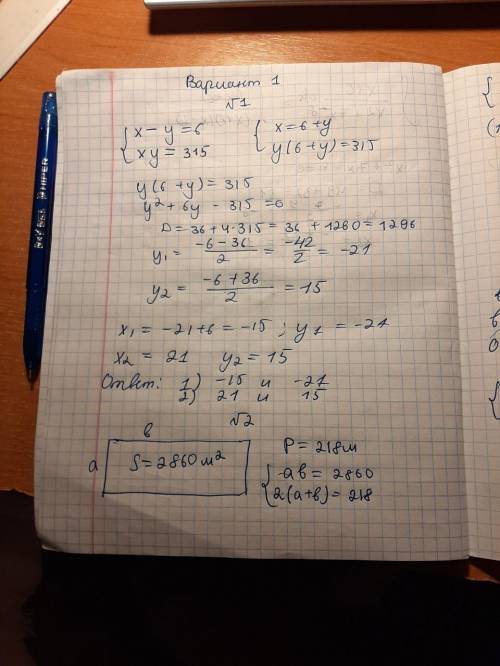 Вариант 1
√1
{ x - y = 6
{ xy = 315
{ x = 6 + y
{ y(6 + y) = 315
y(6 + y) = 315
y² + 6y - 315 = 0
D = 36 + 4·315 = 36 + 1260 = 1296
y₁ = (-6 - 36)/2 = -42/2 = -21
y₂ = (-6 + 36)/2 = 15
x₁ = -21 + 6 = -15 ; y₁ = -21
x₂ = 21 y₂ = 15
Ответ: 1) -15 и -21
2) 21 и 15
√2
в
a
S = 2860 м²
P = 218м
{ ab = 2860
{ 2(a+b) = 218